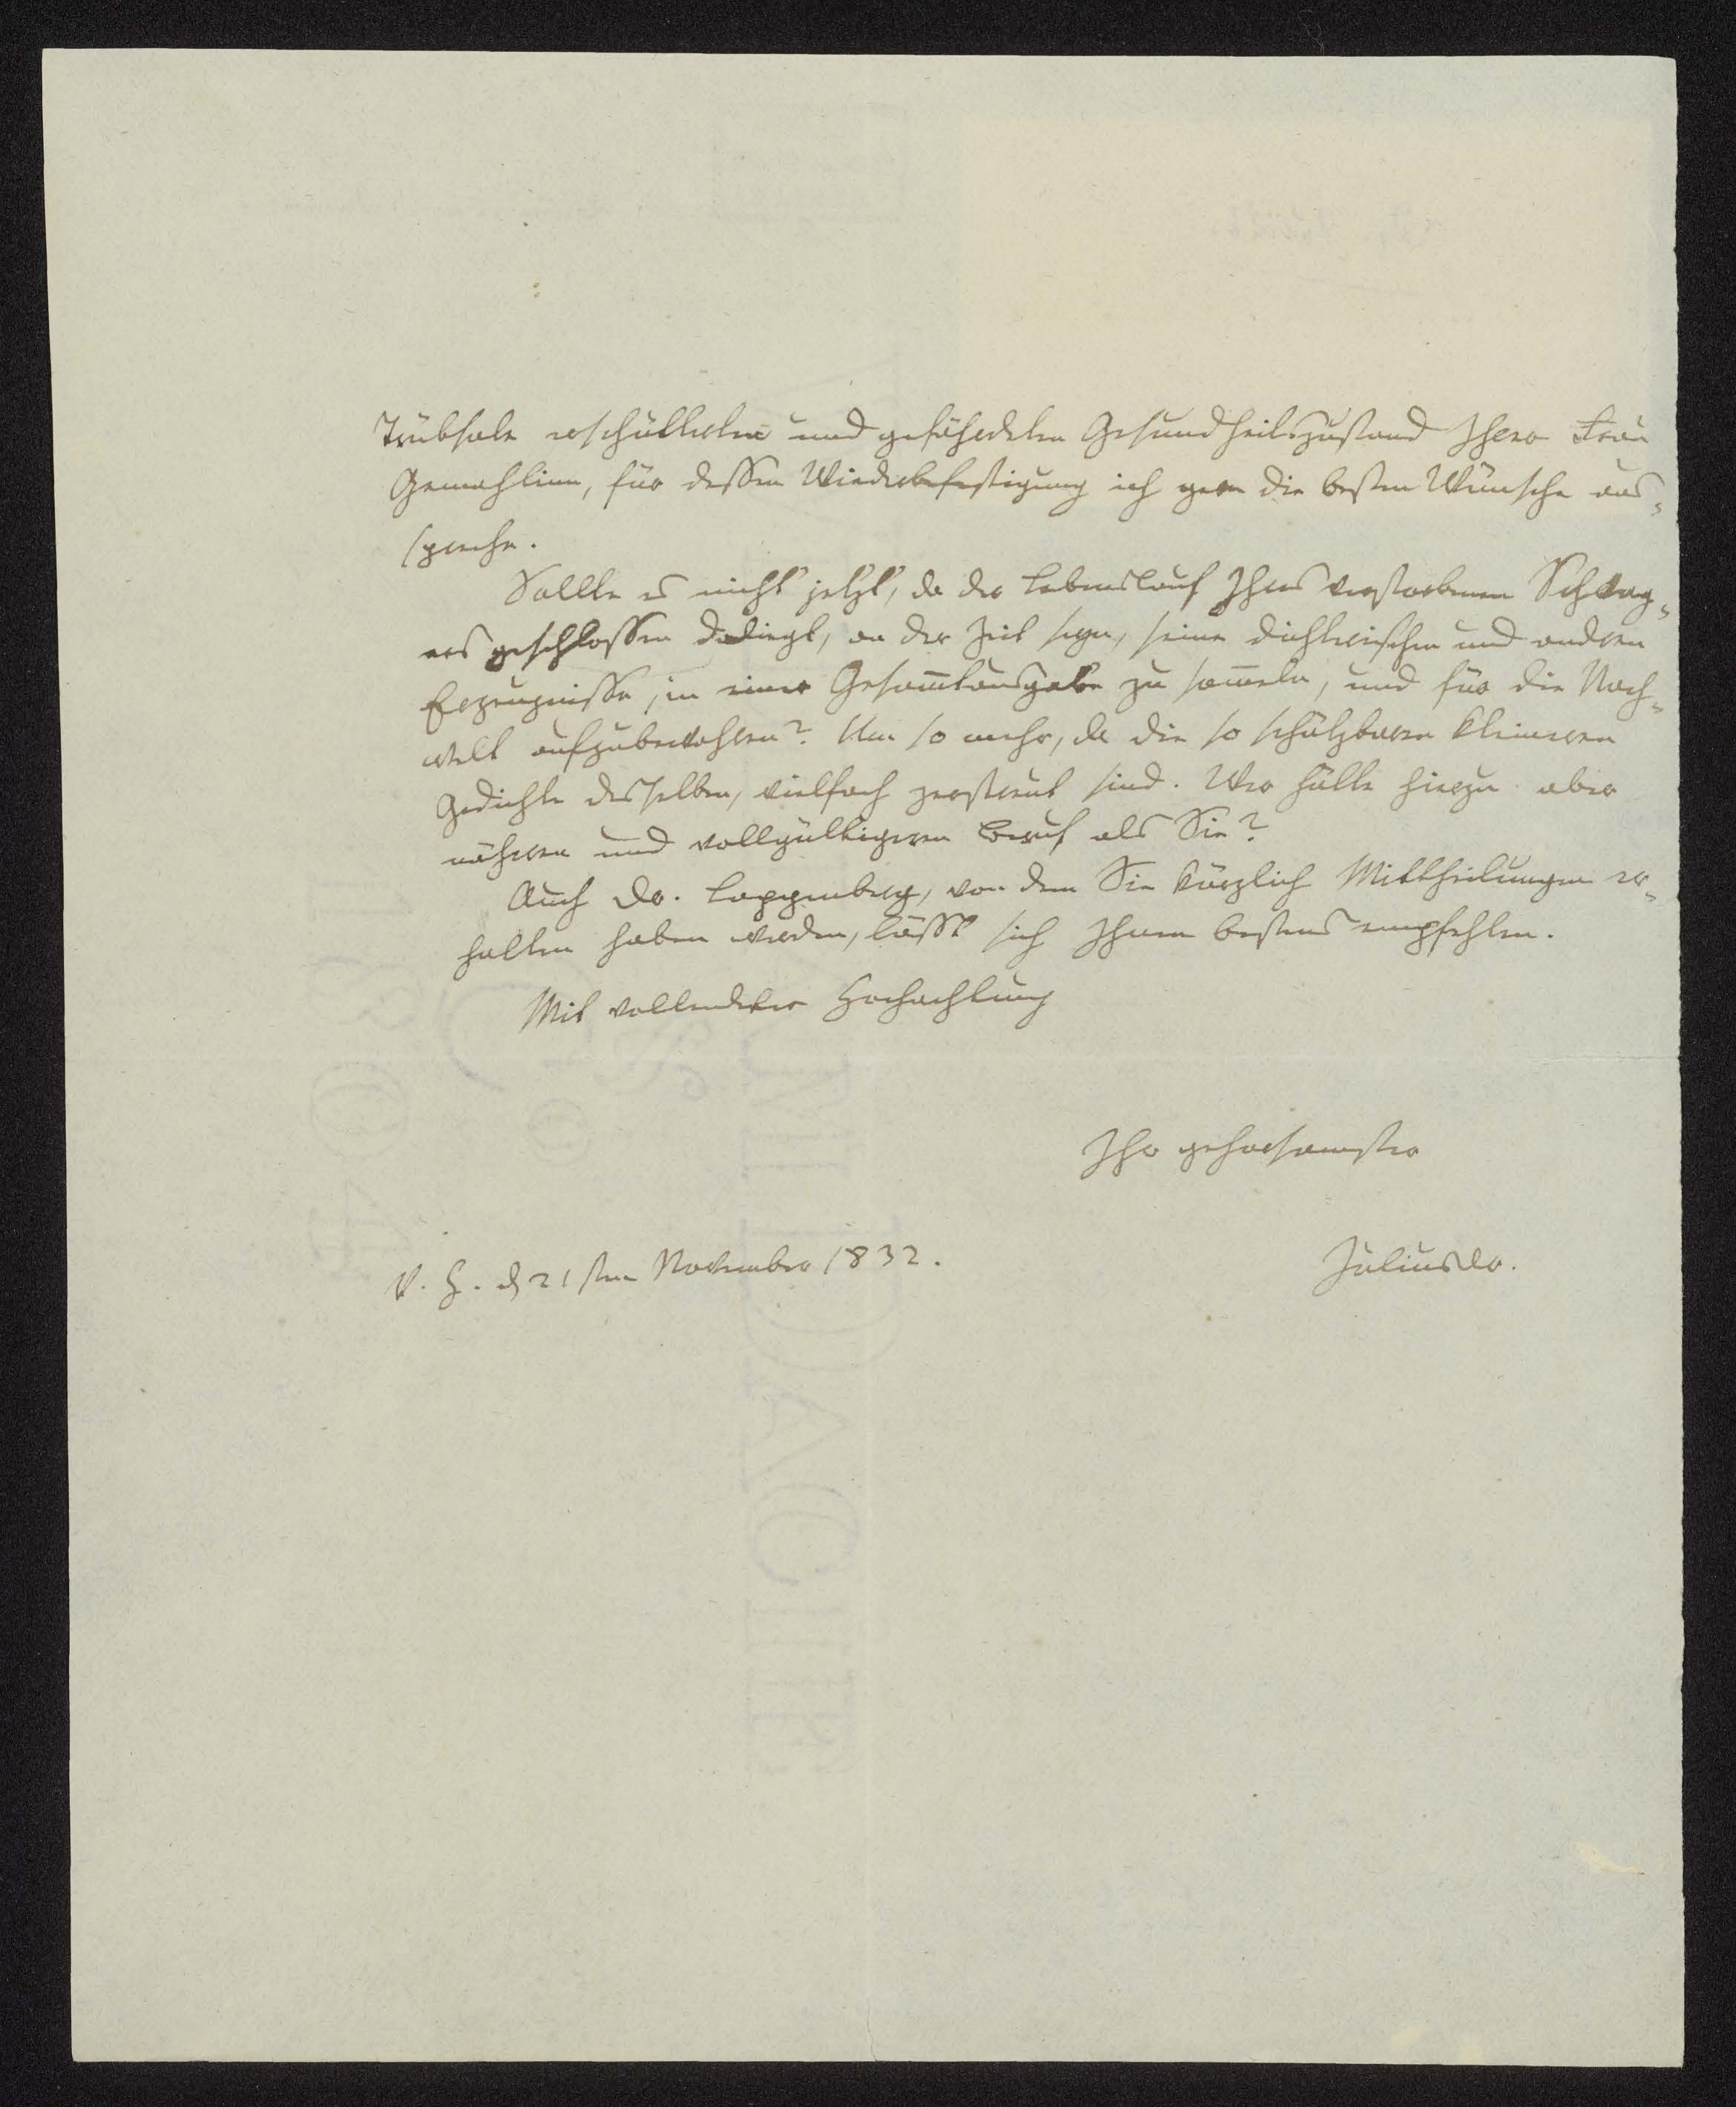 Trübsale erschütterten und gefährdeten Gesundheitszustand Ihrer Frau
Gemahlinn, für dessen Wiederbefestigung ich gern die besten Wünsche aus-
spreche.
Sollte es nicht jetzt, da der Lebenslauf Ihres verstorbenen Schwag-
ers geschlossen daliegt, an der Zeit seyn, seine dichterischen und andren
Erzeugnisse, in einer Gesam̅tausgabe zu sam̅eln, und für die Nach-
welt aufzubewahren? Um so mehr, da die so schätzbaren kleineren
Gedichte desselben, vielfach zerstreut sind. Wer hätte hierzu aber
näheren und vollgültigeren Beruf als Sie?
Auch Dr. Lappenberg, von dem Sie kürzlich Mittheilungen er-
halten haben werden, lässt sich Ihnen bestens empfehlen.
Mit vollendeter Hochachtung
Ihr gehorsamster
V. H. d 21sten November 1832.
Julius Dr.